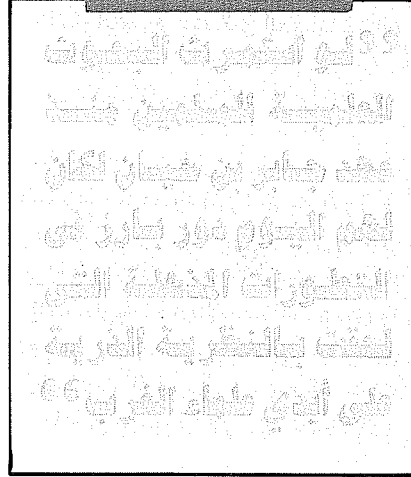 ”لو استمرت البحوث
العلمية للمسلمين منذ
عهد جابر بن حيان لكان
لهم اليوم دور بارز في
التطورات المذهلة التي
لحقت بالنظرية الذرية
على أيدي علماء الغرب“